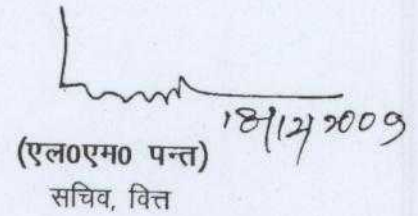 18/12/2009
(एल0एम0 पन्त)
सचिव, वित्त